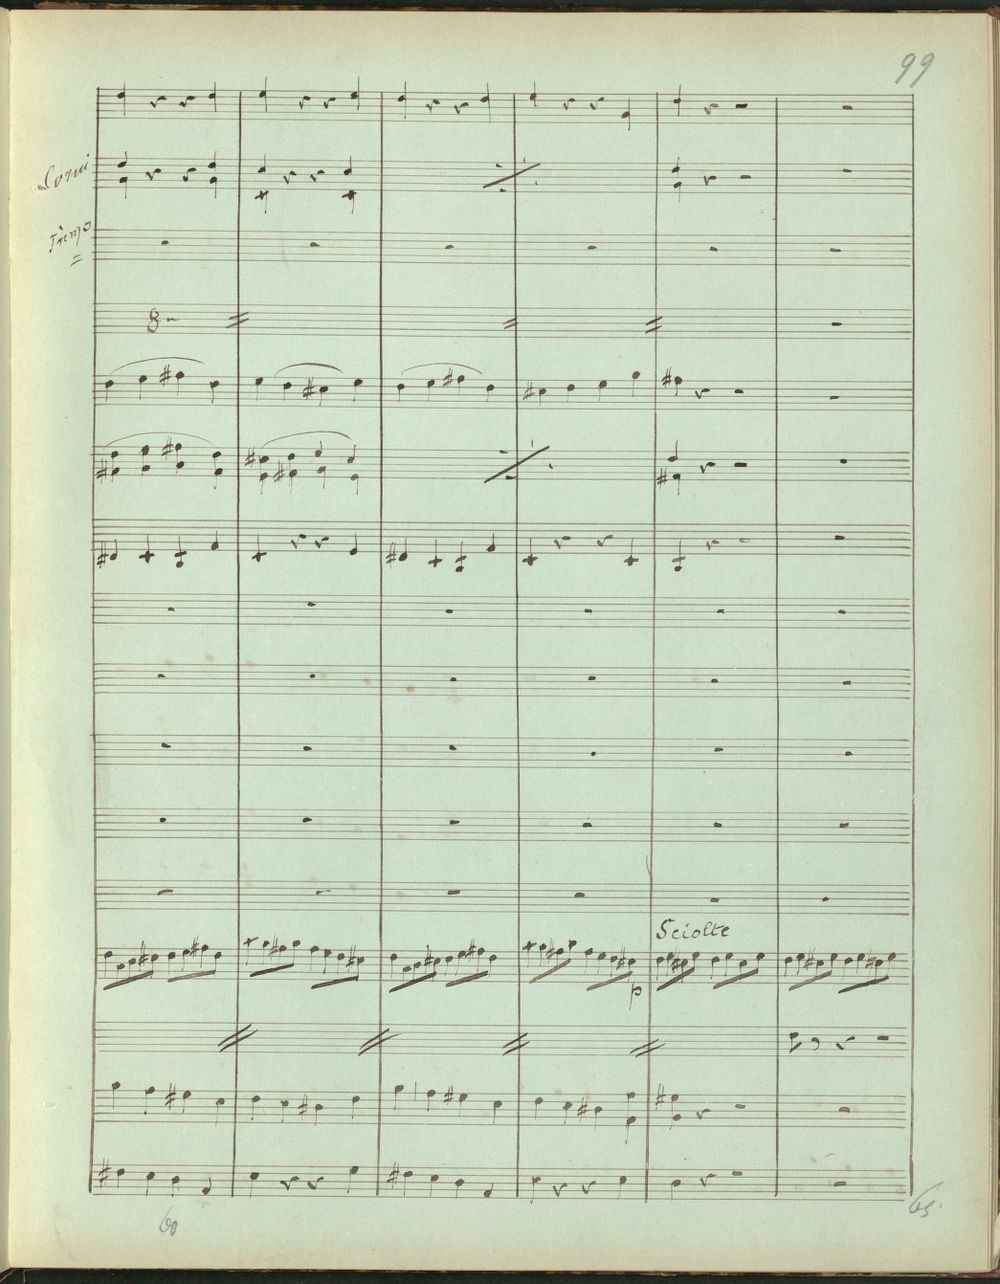 99
Corni
Timp
8
Sciolte
p
60
65.